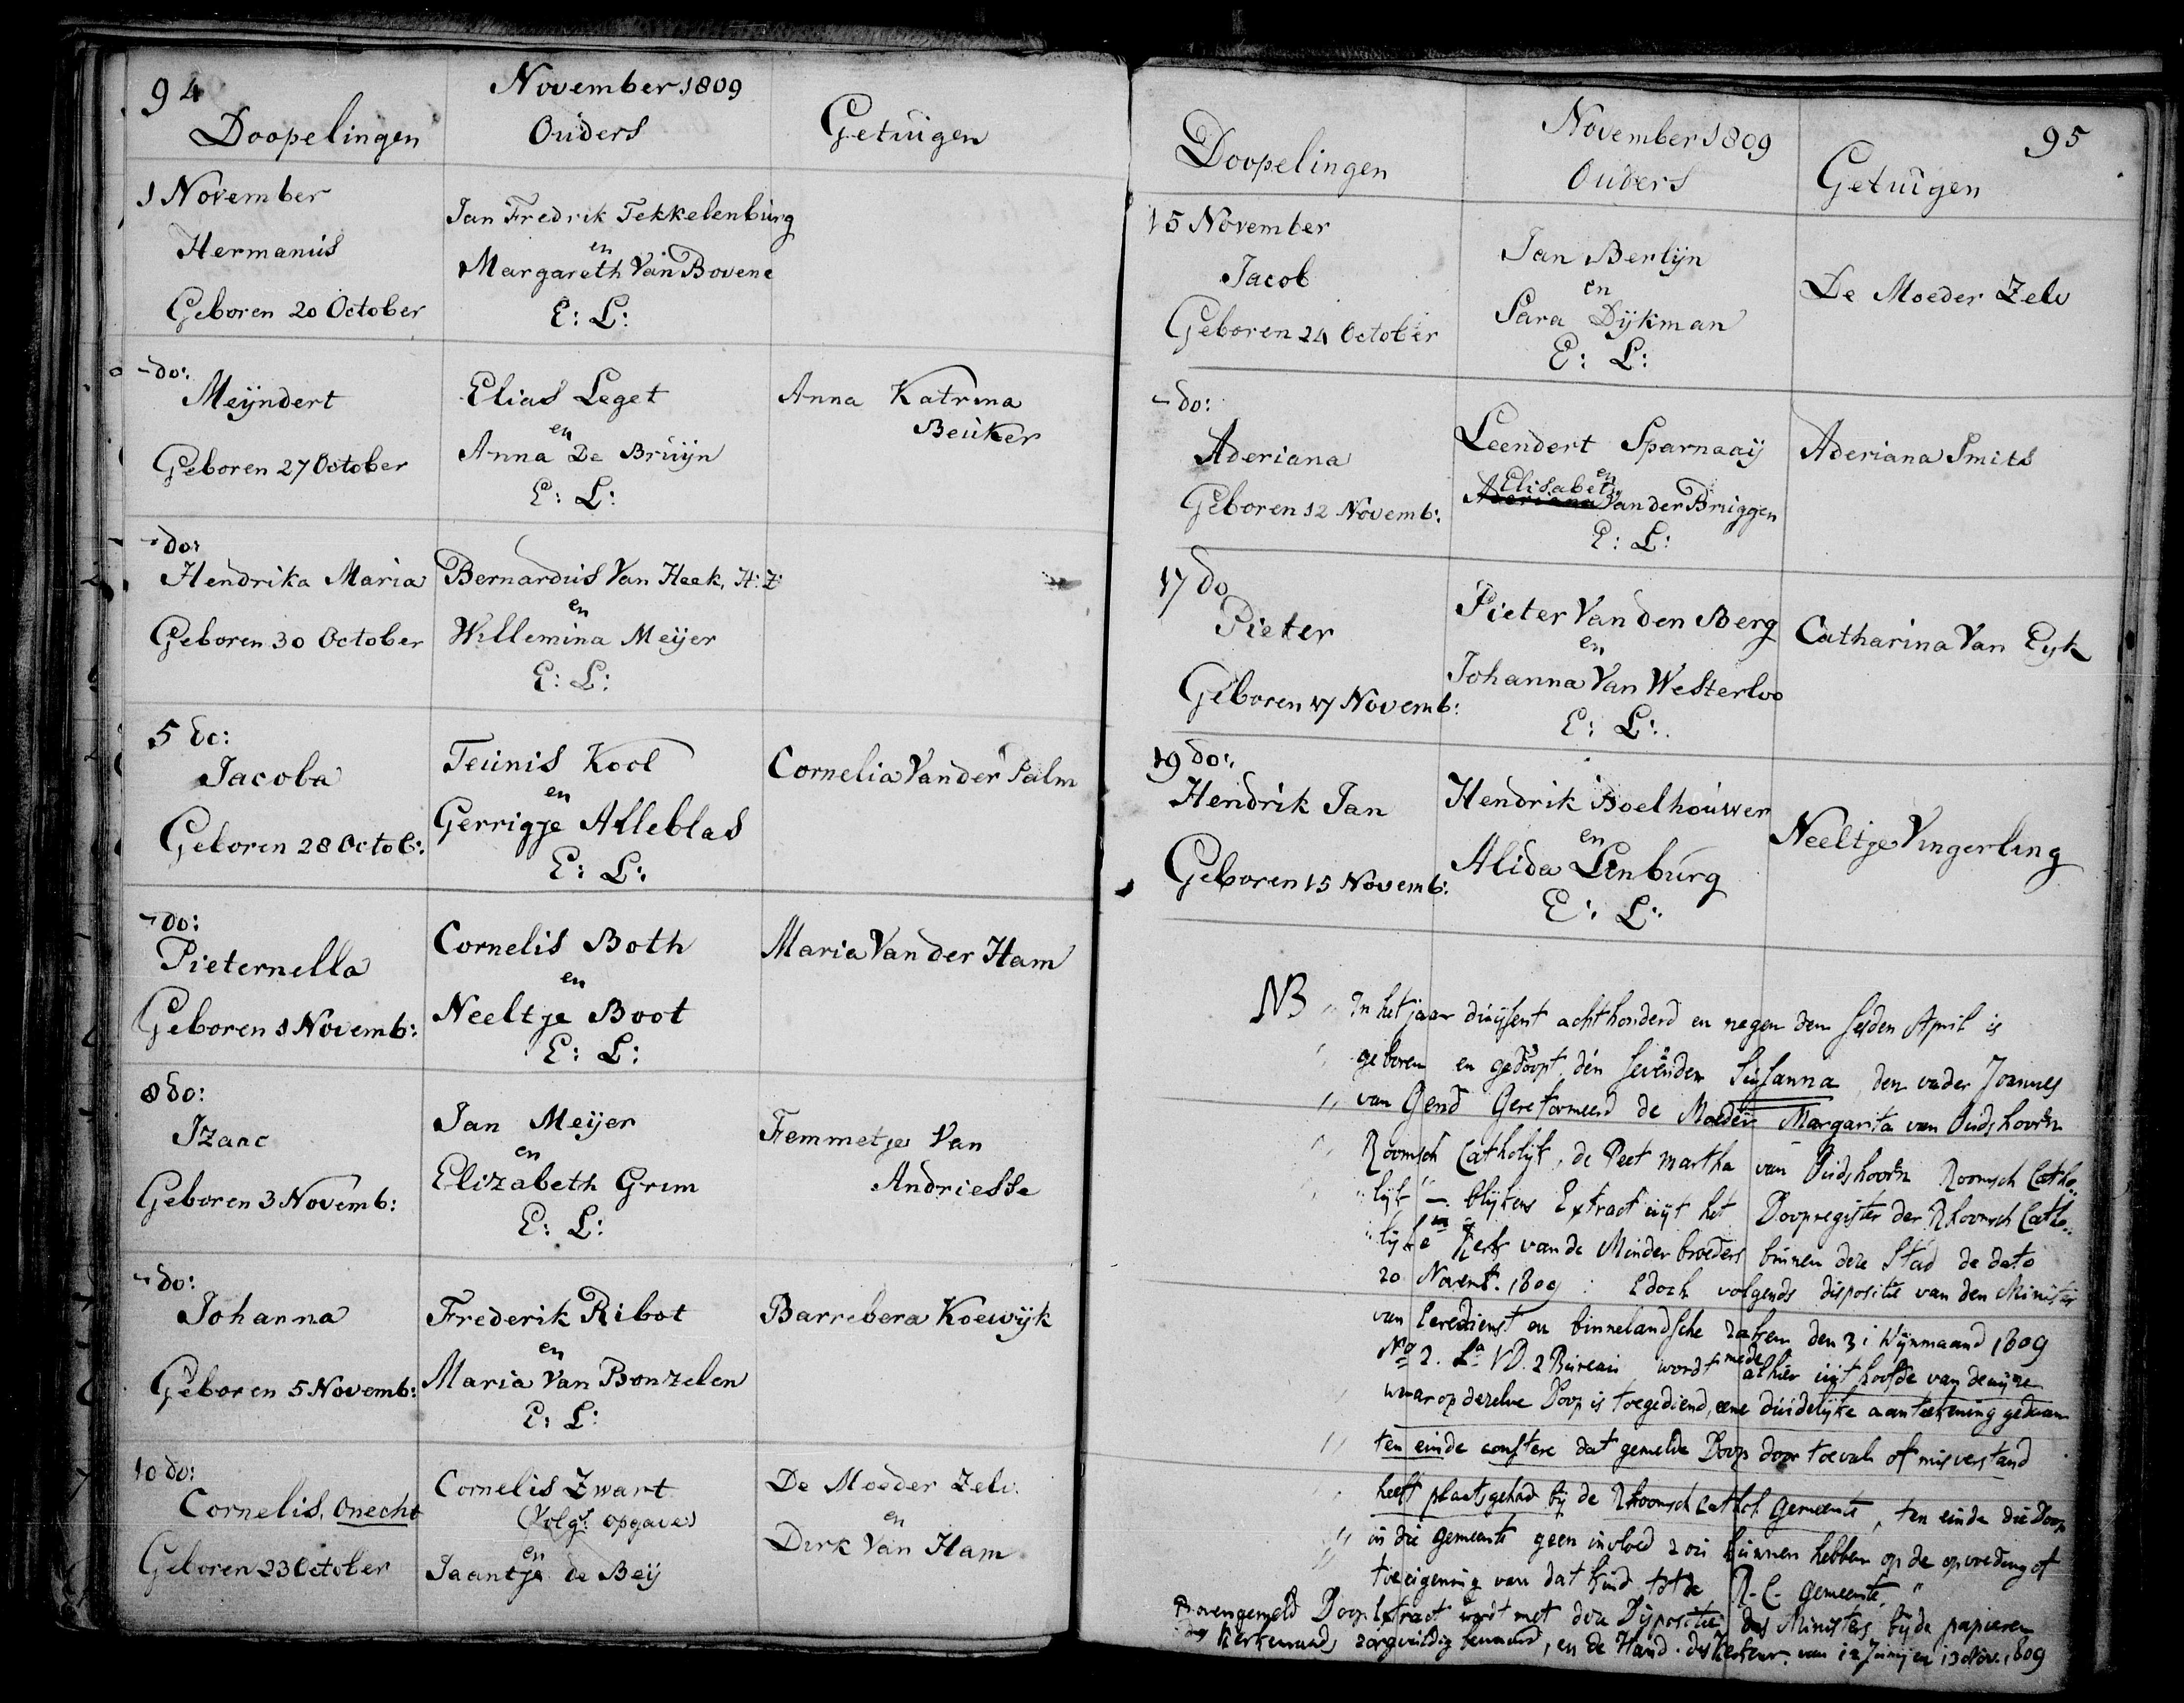 94
November 1809
Doopelingen Ouders Getuigen
1 November
Hermanus
Geboren 20 October
Jan Fredrik Tekkelenburg
en
Margareth Van Bovene
E: L:
- do:
Meijndert
Geboren 27 October
Elias Leget
en
Anna De Bruijn
E: L:
Anna Katrina
Beuker
- do:
Hendrika Maria
Geboren 30 October
Bernardus Van Heek, H: Z:
en
Willemina Meijer
E: L:
5 do:
Jacoba
Geboren 28 Octob:
Teunis Kool
en
Gerrigje Alleblas
E: L:
Cornelia Van der Palm
- do:
Pieternella
Geboren 1 Novemb:
Cornelis Both
en
Neeltje Boot
E: L:
Maria Van der Ham
8 do:
Izaac
Geboren 3 Novemb:
Jan Meijer
en
Elizabeth Grim
E: L:
Femmetje Van
Andriesse
- do:
Johanna
Geboren 5 Novemb:
Frederik Ribot
en
Maria Van Bonzelen
E: L:
Barrebera Koewijk
10 do:
Cornelis, Onecht
Geboren 23 October
Cornelis Zwart
(Volgs opgave)
en
Jaantje de Beij
De Moeder Zelv.
en
Dirk Van Ham
95
November 1809
Doopelingen Ouders Getuigen
15 November
Jacob
Geboren 24 October
Jan Berlijn
en
Sara Dijkman
E: L:
De Moeder Zelv
- do:
Aderiana
Geboren 12 Novemb:
Leendert Sparnaaij
en
Elisabeth
Aderiana Van der Bruggen
E: L:
Aderiana Smits
17 do
Pieter
Geboren 17 Novemb:
Pieter Van den Berg
en
Johanna Van Westerloo
E: L:
Catharina Van Eyk
19 do:
Hendrik Jan
Geboren 15 Novemb:
Hendrik Boelhouwer
en
Alida Lenburg
E: L:
Neeltje Vingerling
NB ,, In het jaar duijsent achthonderd en negen den sesden April is
,, geboren en gedoopt den sevenden Susanna, den vader Joannes
,, van Gend Gereformeerd de Moeder Margarita van Oudshoorn
,, Roomsch Catholijk, de Peet martha van Oudshoorn Roomsch Catho„
,, lijk — blijkens Extract uijt het Doopregister der Rhoomsch Catho„
,, lijke Kerk van de Minderbroeders binnen deze Stad de dato
20 Novemb. 1809 : Edoch volgends dispositie van den Minister
van Eeredienst en binnelandsche zaken den 31 Wijnmaand 1809
No 2. La VD. 2 Bureau wordt mede alhier uijt hoofde van de wijze
waarop dezelve Doop is toegediend, eene duidelijke aantekening gedaan
,, ten einde constere dat gemelde Doop door toeval of misverstand
heeft plaatsgehad bij de Rhoomsch Cathol. Gemeente, ten einde die Doop
,, in die gemeente geen invloed zou kunnen hebben op de opvoeding of
,, toeeigening van dat kind tot de R. C. Gemeente."
Bovengemeld Doop Extract wordt met den Dispositie des Ministers bij de papieren
des Kerkenraads zorgvuldig bewaard, en de Hand. des Kerkenr. van 12 Junij en 13 Nov. 1809